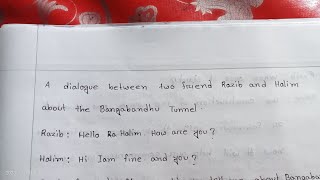 A dialogue between two friend Razib and Halim
about the Bangabandhu Tunnel
Razib: Hello Ra Halim. How are you?
Halim: Hi Iam fine and you?
about Bangaba